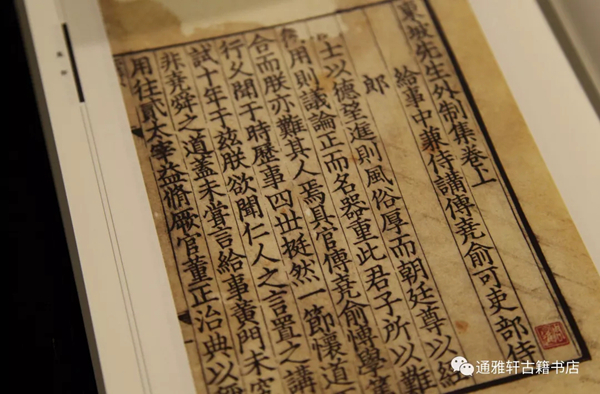 東坡先生外制集卷上
給事中兼侍講傅堯俞可吏部侍
郎
士以德望進則風俗厚而朝廷尊以經
用則議論正而名器重此君子所以難
合而朕亦難其人焉具官傅堯俞博學
行义聞于時歷事四丗挺然一節懷道
試十年于兹朕欲聞仁人之言置之講
非堯舜之道蓋未嘗言給事黃門未究
用往貳太宰益脩厥官董正治典以
通雅轩古籍书店